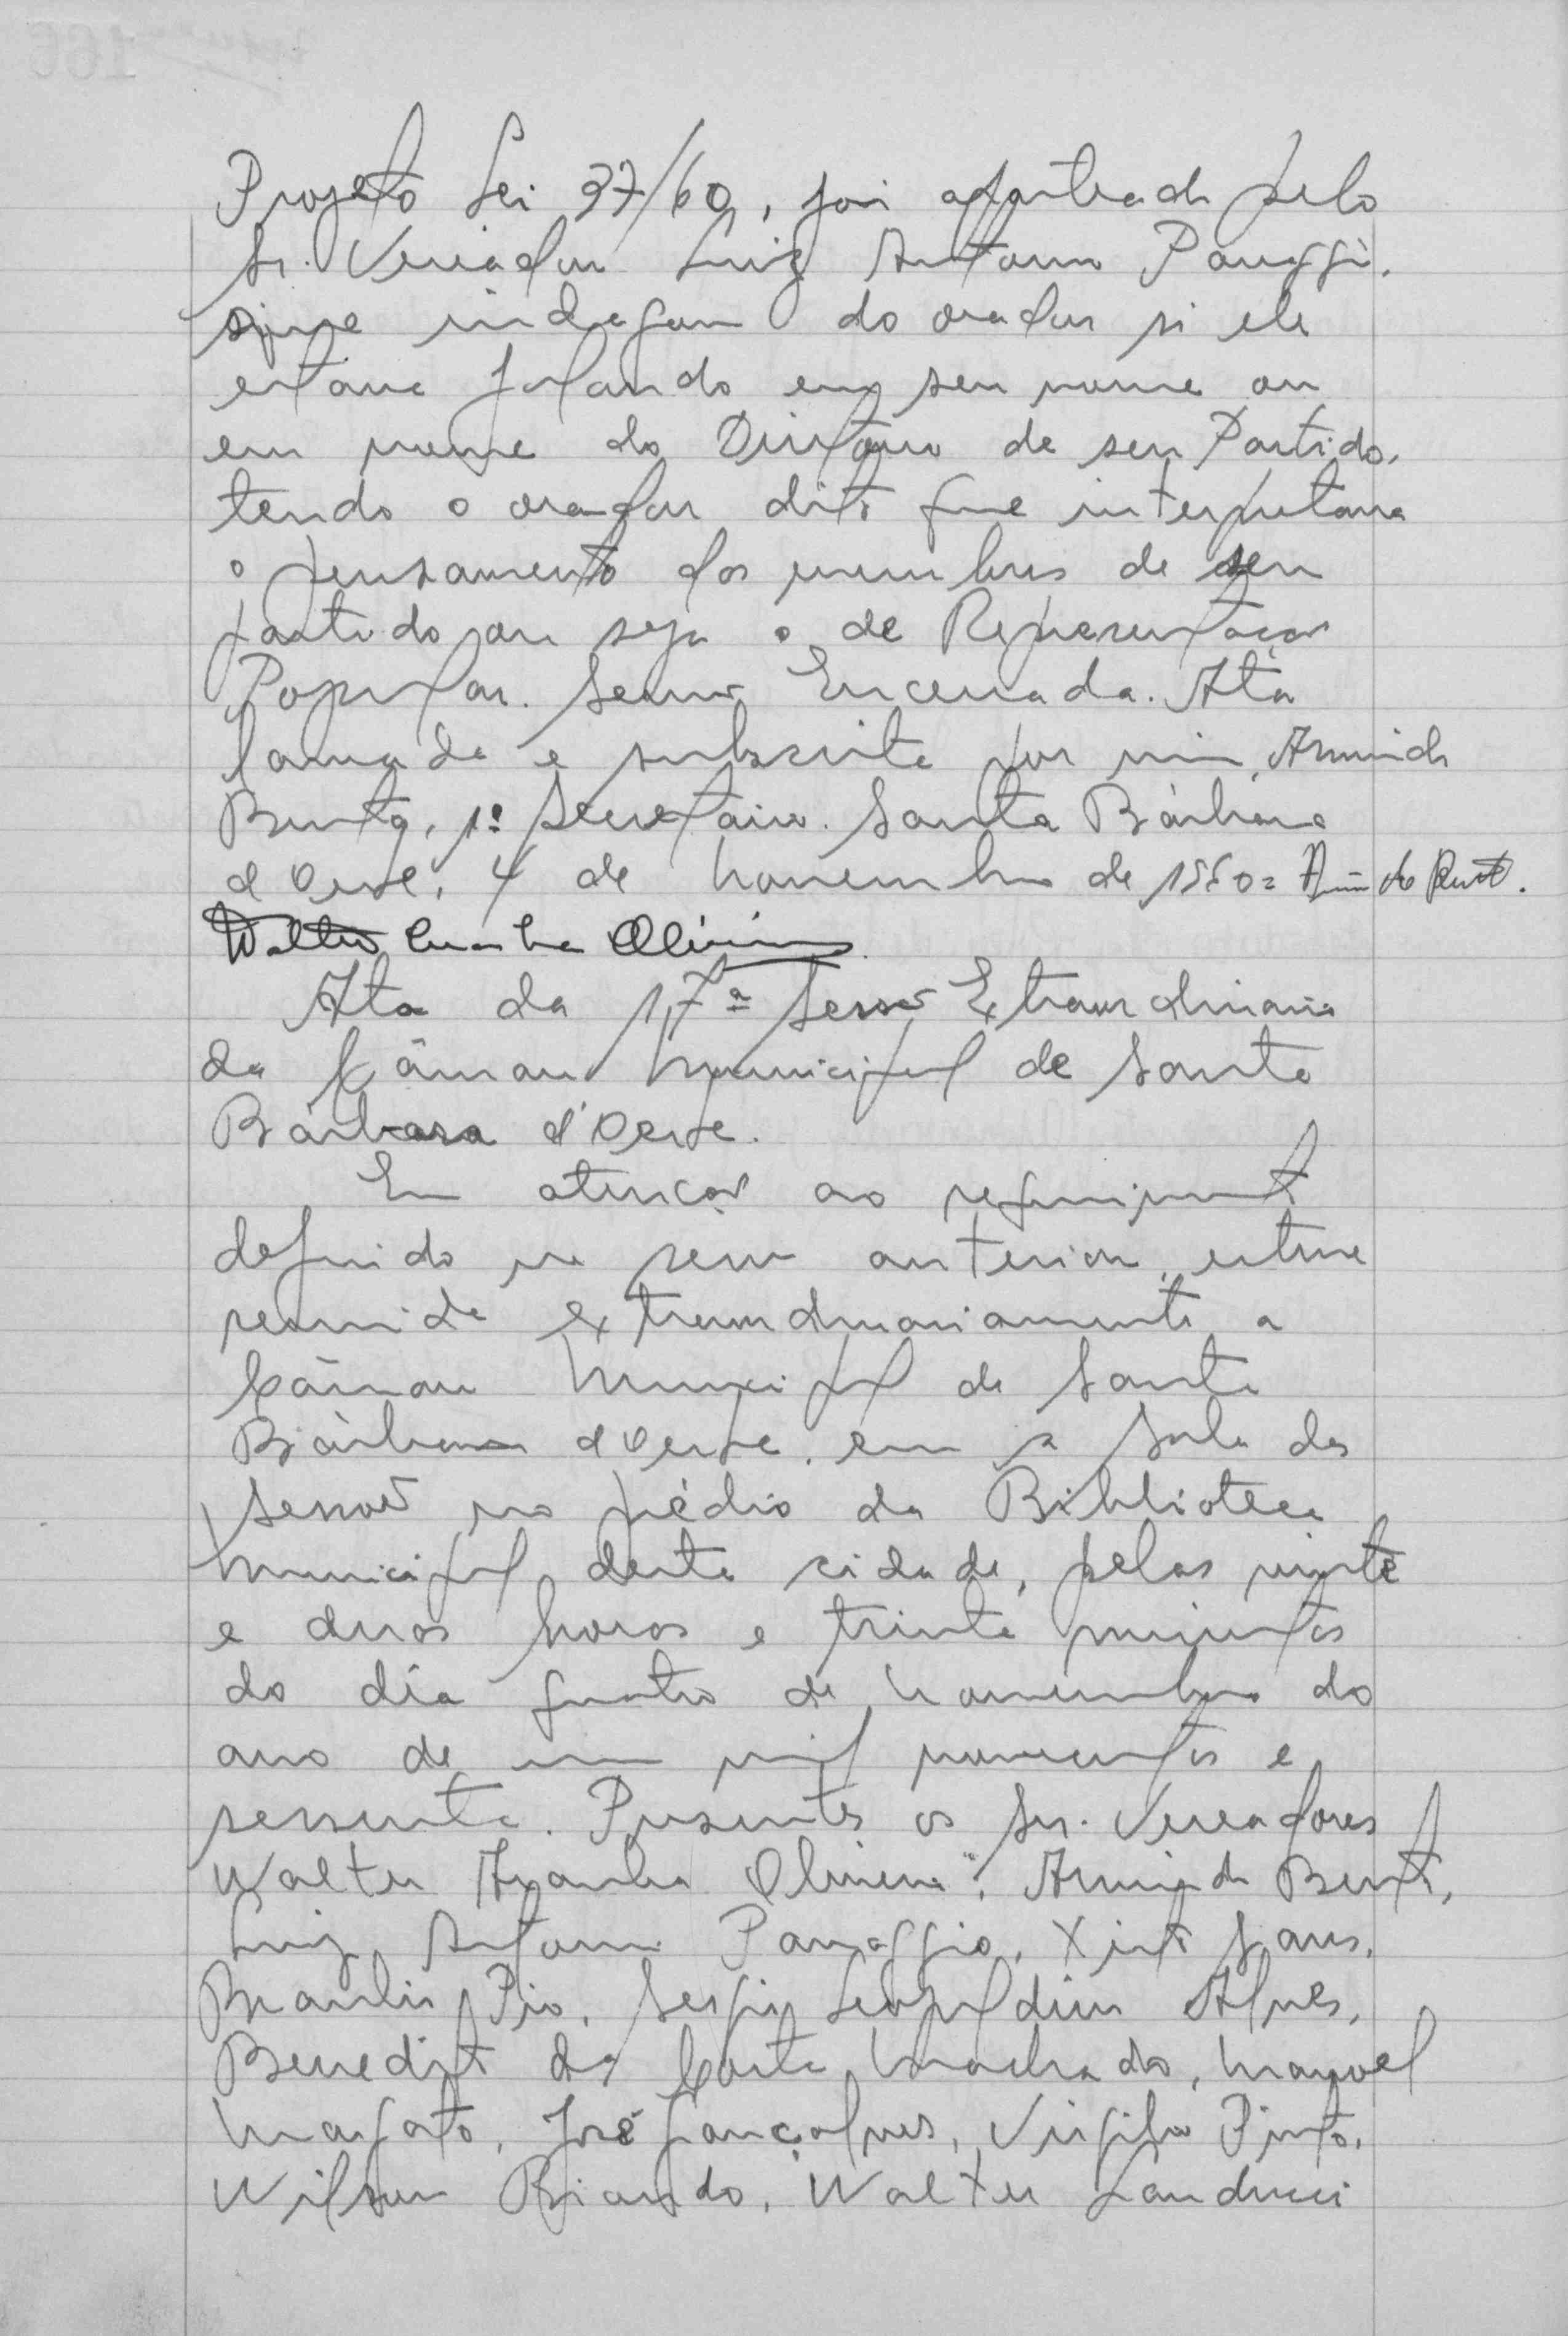 Projeto Lei 37/60, foi aparteado pelo
Sr. Vereador Luiz Antonio Panaggio,
que indagou do orador si ele
estava falando em seu nome ou
em nome do Diretório de seu Partido,
tendo o orador dito que interpretava
o pensamento dos membros de seu
partido ou seja o de Representação
Popular. Sessão Encerrada. Ata
lavrada e subscrita por mim, Armindo
1º Secretario. Santa Bárbara
d'Oeste, 4 de Novembro de 1960 =
Walter Oliveira
Ata da 17ª Sessão Extraordinaria
da Câmara Municipal de Santa
Bárbara d'Oeste.
Em atenção ao requerimento
deferido na sessão anterior, esteve
reunida extraordinariamente a
Câmara Municipal de Santa
Bárbara d'Oeste, em a sala das
sessões no prédio da Biblioteca
Municipal desta cidade, pelas vinte
e duas horas e trinta minutos
do dia quatro de Novembro do
ano de um mil novecentos e
sessenta. Presentes os Srs. Vereadores
Walter Aranha Oliveira, Armindo
Luiz Antonio Panaggio,
Braulio Pio, Sergio Leopoldino Alves,
Benedito da Costa Machado, Manoel
José Gonçalves, Virgilio Pinto,
Wilson Walter Landucci